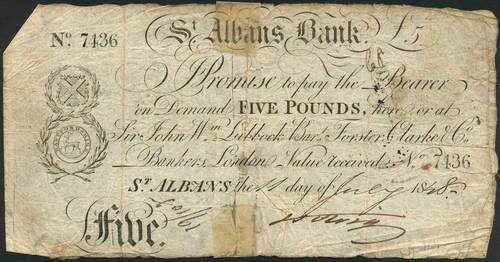 Nº 7436 St Albans Bank. £5
I Promise to pay the Bearer
on Demand FIVE POUNDS, here or at
Sir John Wm. Lubbock Bart. Forster, Clarke & Co.
Bankers London Value received Nº 7436
ST. ALBANS the 1 day of July 1848
Five.